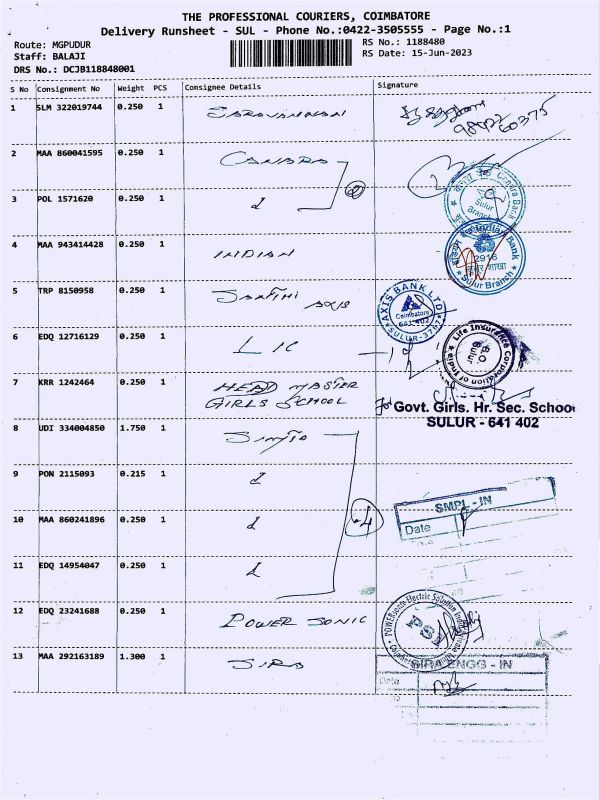 THE PROFESSIONAL COURIERS, COIMBATORE
Delivery Runsheet - SUL - Phone No.:0422-3505555 - Page No.:1
Route: MGPUDUR
Staff: BALAJI
DRS No.: DCJB118848001
RS No.: 1188480
RS Date: 15-Jun-2023
S No Consignment No Weight PCS Consignee Details Signature
1 SLM 322019744 0.250 1 SARAVANAN
2 MAA 860041595 0.250 1 CANARA
Canara Bank
Sulur
Branch
3 POL 1571620 0.250 1
2
4 MAA 943414428 0.250 1 INDIAN
Indian Bank
2916
सुलूर शाखा
Sulur Branch
5 TRP 8150958 0.250 1 AXIS
AXIS BANK LTD.
Coimbatore
641 402
SULUR-3767
6 EDQ 12716129 0.250 1 LIC
Life Insurance Corporation of India
B.O.
Sulur
7 KRR 1242464 0.250 1 HEAD MASTER
GIRLS SCHOOL
for Govt. Girls. Hr. Sec. School
SULUR - 641 402
8 UDI 334004850 1.750 1
9 PON 2115093 0.215 1
SMPL - IN
Date
4
10 MAA 860241896 0.250 1
11 EDQ 14954047 0.250 1
12 EDQ 23241688 0.250 1 POWER SONIC
13 MAA 292163189 1.300 1
SIRA ENGG - IN